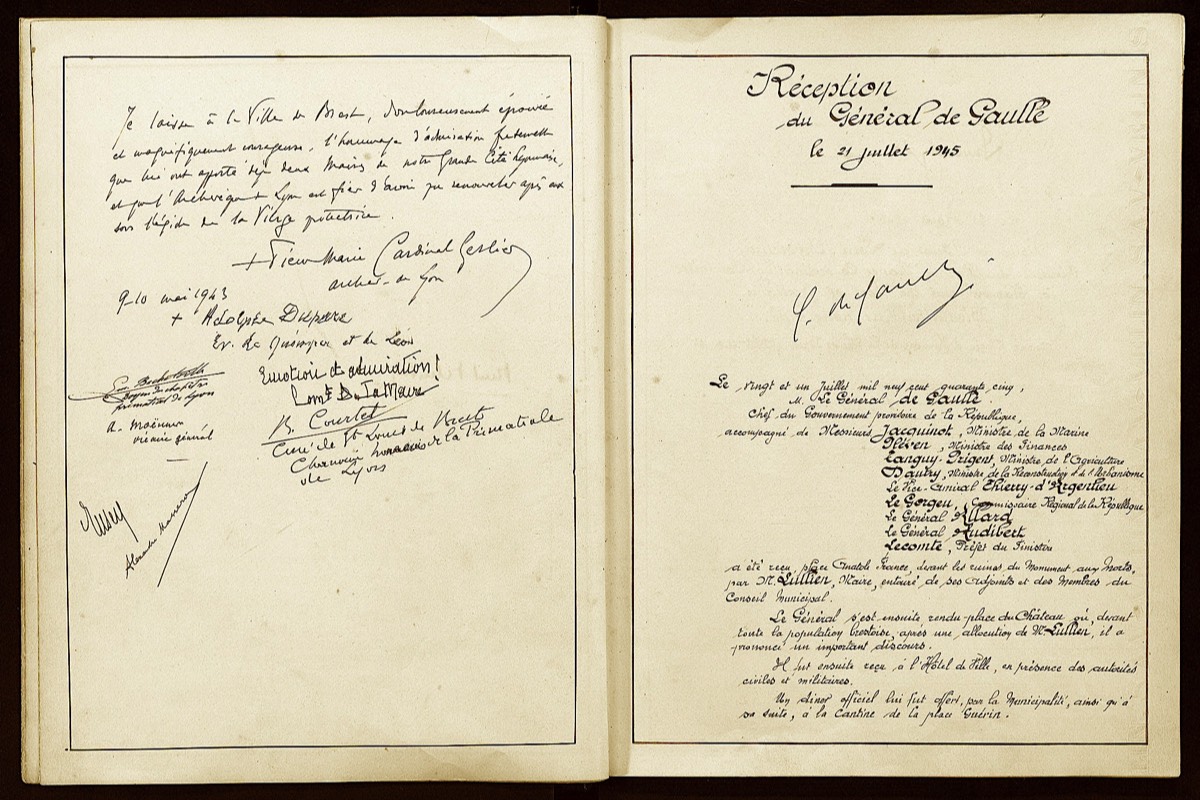 Je laisse à la Ville de Brest, douloureusement éprouvée
et magnifiquement courageuse, l'hommage d'admiration fraternelle
que lui ont apporté déjà deux Maires de notre Grande Cité Lyonnaise,
et que l'Archevêque de Lyon est fier d'avoir pu renouveler après eux
sous l'égide de la Vierge protectrice.
+ Pierre-Marie Cardinal Gerlier
archev. de Lyon
9-10 mai 1943
+ Adolphe Duparc
Ev. de Quimper et de Léon
doyen du chapitre
primatial de Lyon
vicaire général
Emotion et admiration!
B. Courtet
Curé de St Louis de Brest
Chanoine honoraire de la Primatiale
de Lyon
Alexandre
Réception
du Général de Gaulle
le 21 juillet 1945
C. de Gaulle
Le vingt et un Juillet mil neuf cent quarante cinq,
M. Le Général de Gaulle
Chef du Gouvernement provisoire de la République,
accompagné de Messieurs Jacquinot, Ministre de la Marine
Pléven, Ministre des Finances
Tanguy-Prigent, Ministre de l'Agriculture
Dautry, Ministre de la Reconstruction et de l'Urbanisme
Le Vice-Amiral Thierry-d'Argenlieu
Le Gorgeu, Commissaire Régional de la République
Le Général Allard
Le Général Audibert
Lecomte, Préfet du Finistère
a été reçu, place Anatole France, devant les ruines du Monument aux Morts,
par M. Lullien, Maire, entouré de ses Adjoints et des Membres du
Conseil Municipal.
Le Général s'est ensuite rendu place du Château où, devant
toute la population brestoise, après une allocution de M. Lullien, il a
prononcé un important discours.
Il fut ensuite reçu à l'Hôtel de Ville, en présence des autorités
civiles et militaires.
Un dîner officiel lui fut offert, par la Municipalité, ainsi qu'à
sa suite, à la Cantine de la place Guérin.